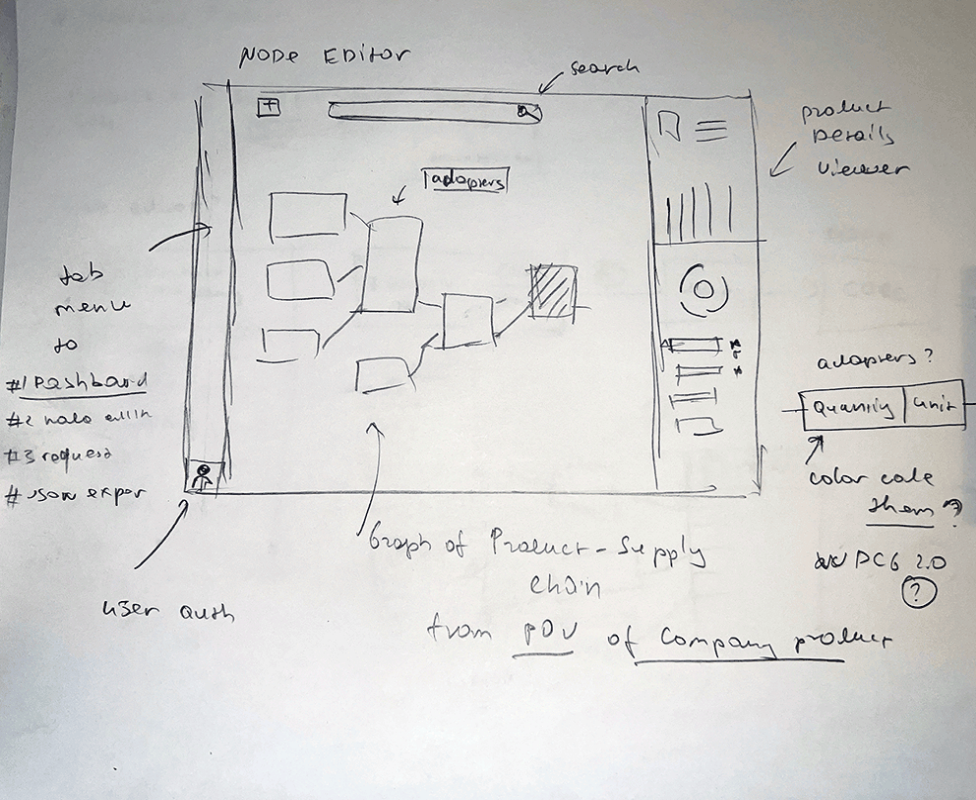 NODE EDITOR
search
product
Details
viewer
adapters
tab
menu
to
#1 Dashboard
#2
#3 request
# JSON expor
user auth
adapters?
Quantity | unit
color code
them?
2.0
?
Graph of Product-Supply
chain
from POV of company product